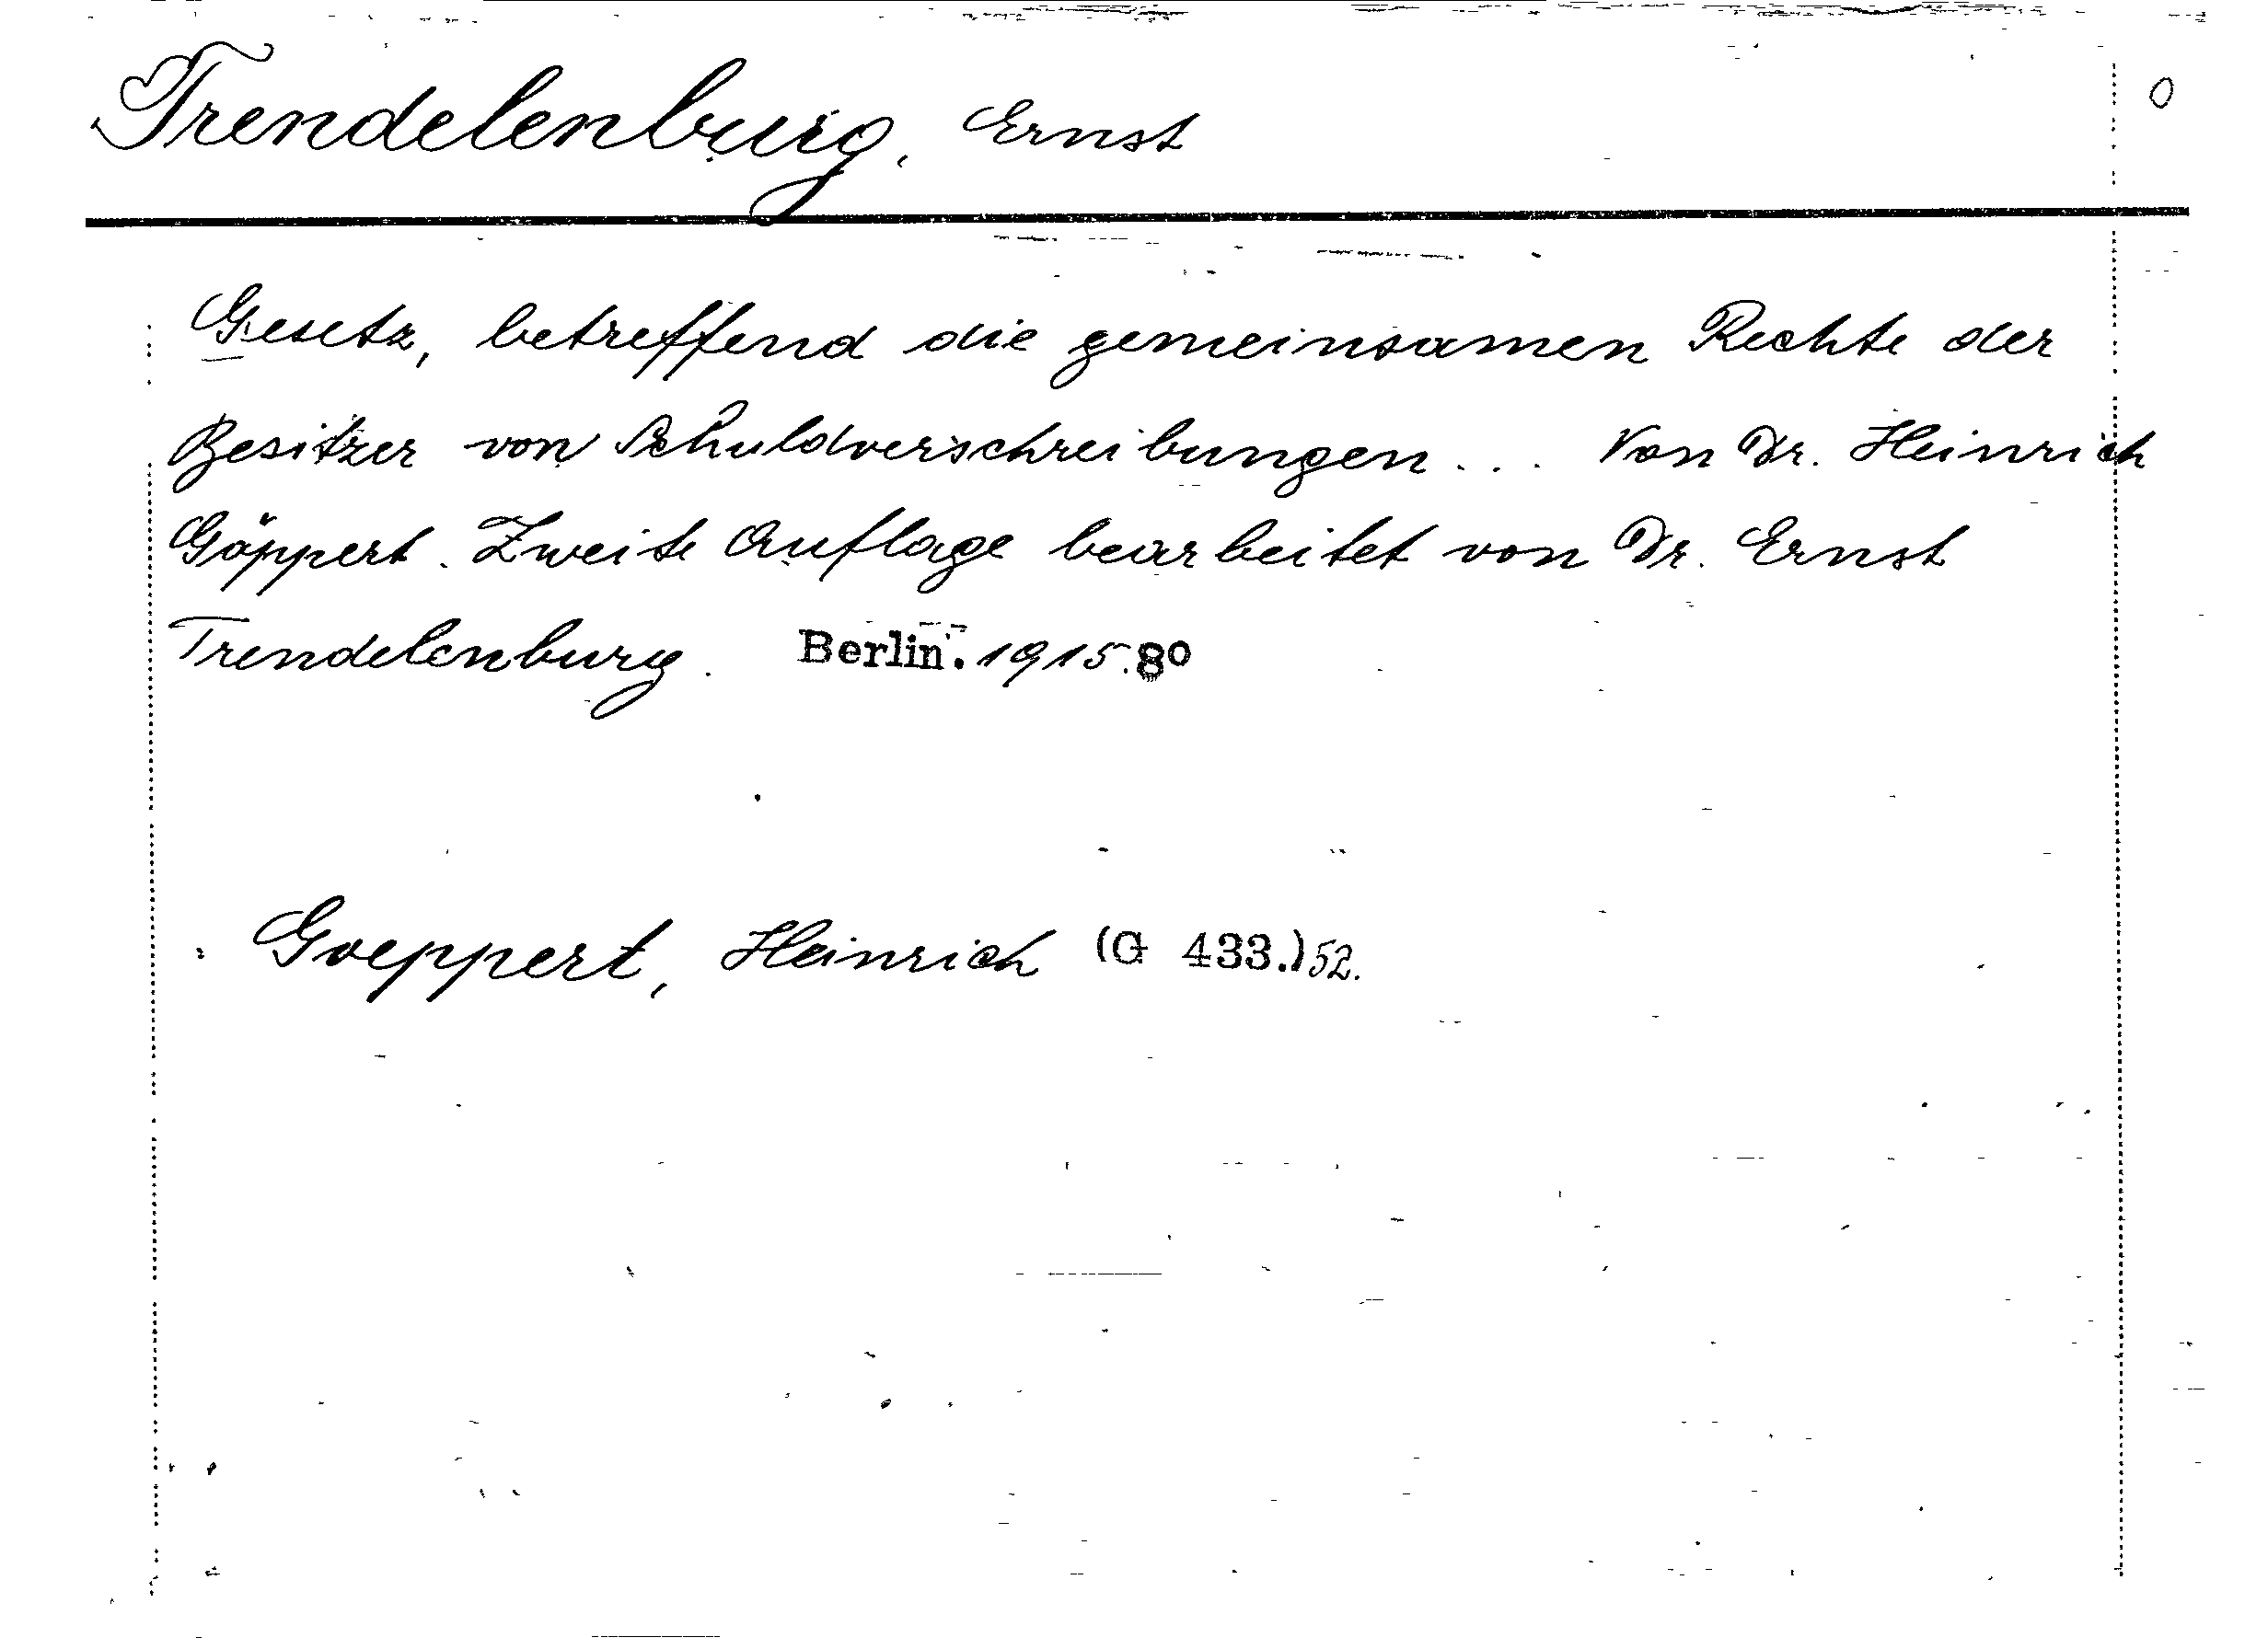 Trendelenburg, Ernst 0
Gesetz, betreffend die gemeinsamen Rechte der
Besitzer von Schuldverschreibungen... Von Dr. Heinrich
Göppert. Zweite Auflage bearbeitet von Dr. Ernst
Trendelenburg. Berlin. 1915. 8⁰
Goeppert, Heinrich (G 433.) 52.